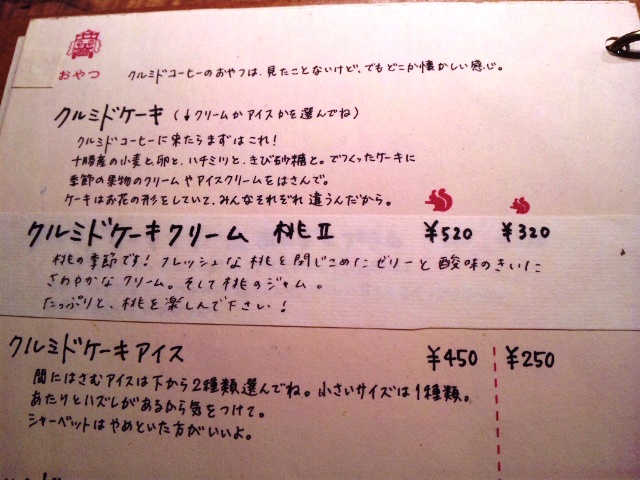 おやつ クルミドコーヒーのおやつは、見たことないけど、でもどこか懐かしい感じ。
クルミドケーキ (↓クリームかアイスかを選んでね)
クルミドコーヒーに来たらまずはこれ!
十勝産の小麦と、卵と、ハチミツと、きび砂糖と。でつくったケーキに
季節の果物のクリームやアイスクリームをはさんで。
ケーキはお花の形をしていて、みんなそれぞれ違うんだから。
クルミドケーキクリーム 桃Ⅱ ¥520 ¥320
桃の季節です!フレッシュな桃を閉じこめたゼリーと酸味のきいた
さわやかなクリーム。そして桃のジャム。
たっぷりと、桃を楽しんで下さい!
クルミドケーキアイス ¥450 ¥250
間にはさむアイスは下から2種類選んでね。小さいサイズは1種類。
あたりとハズレがあるから気をつけて。
シャーベットはやめといた方がいいよ。